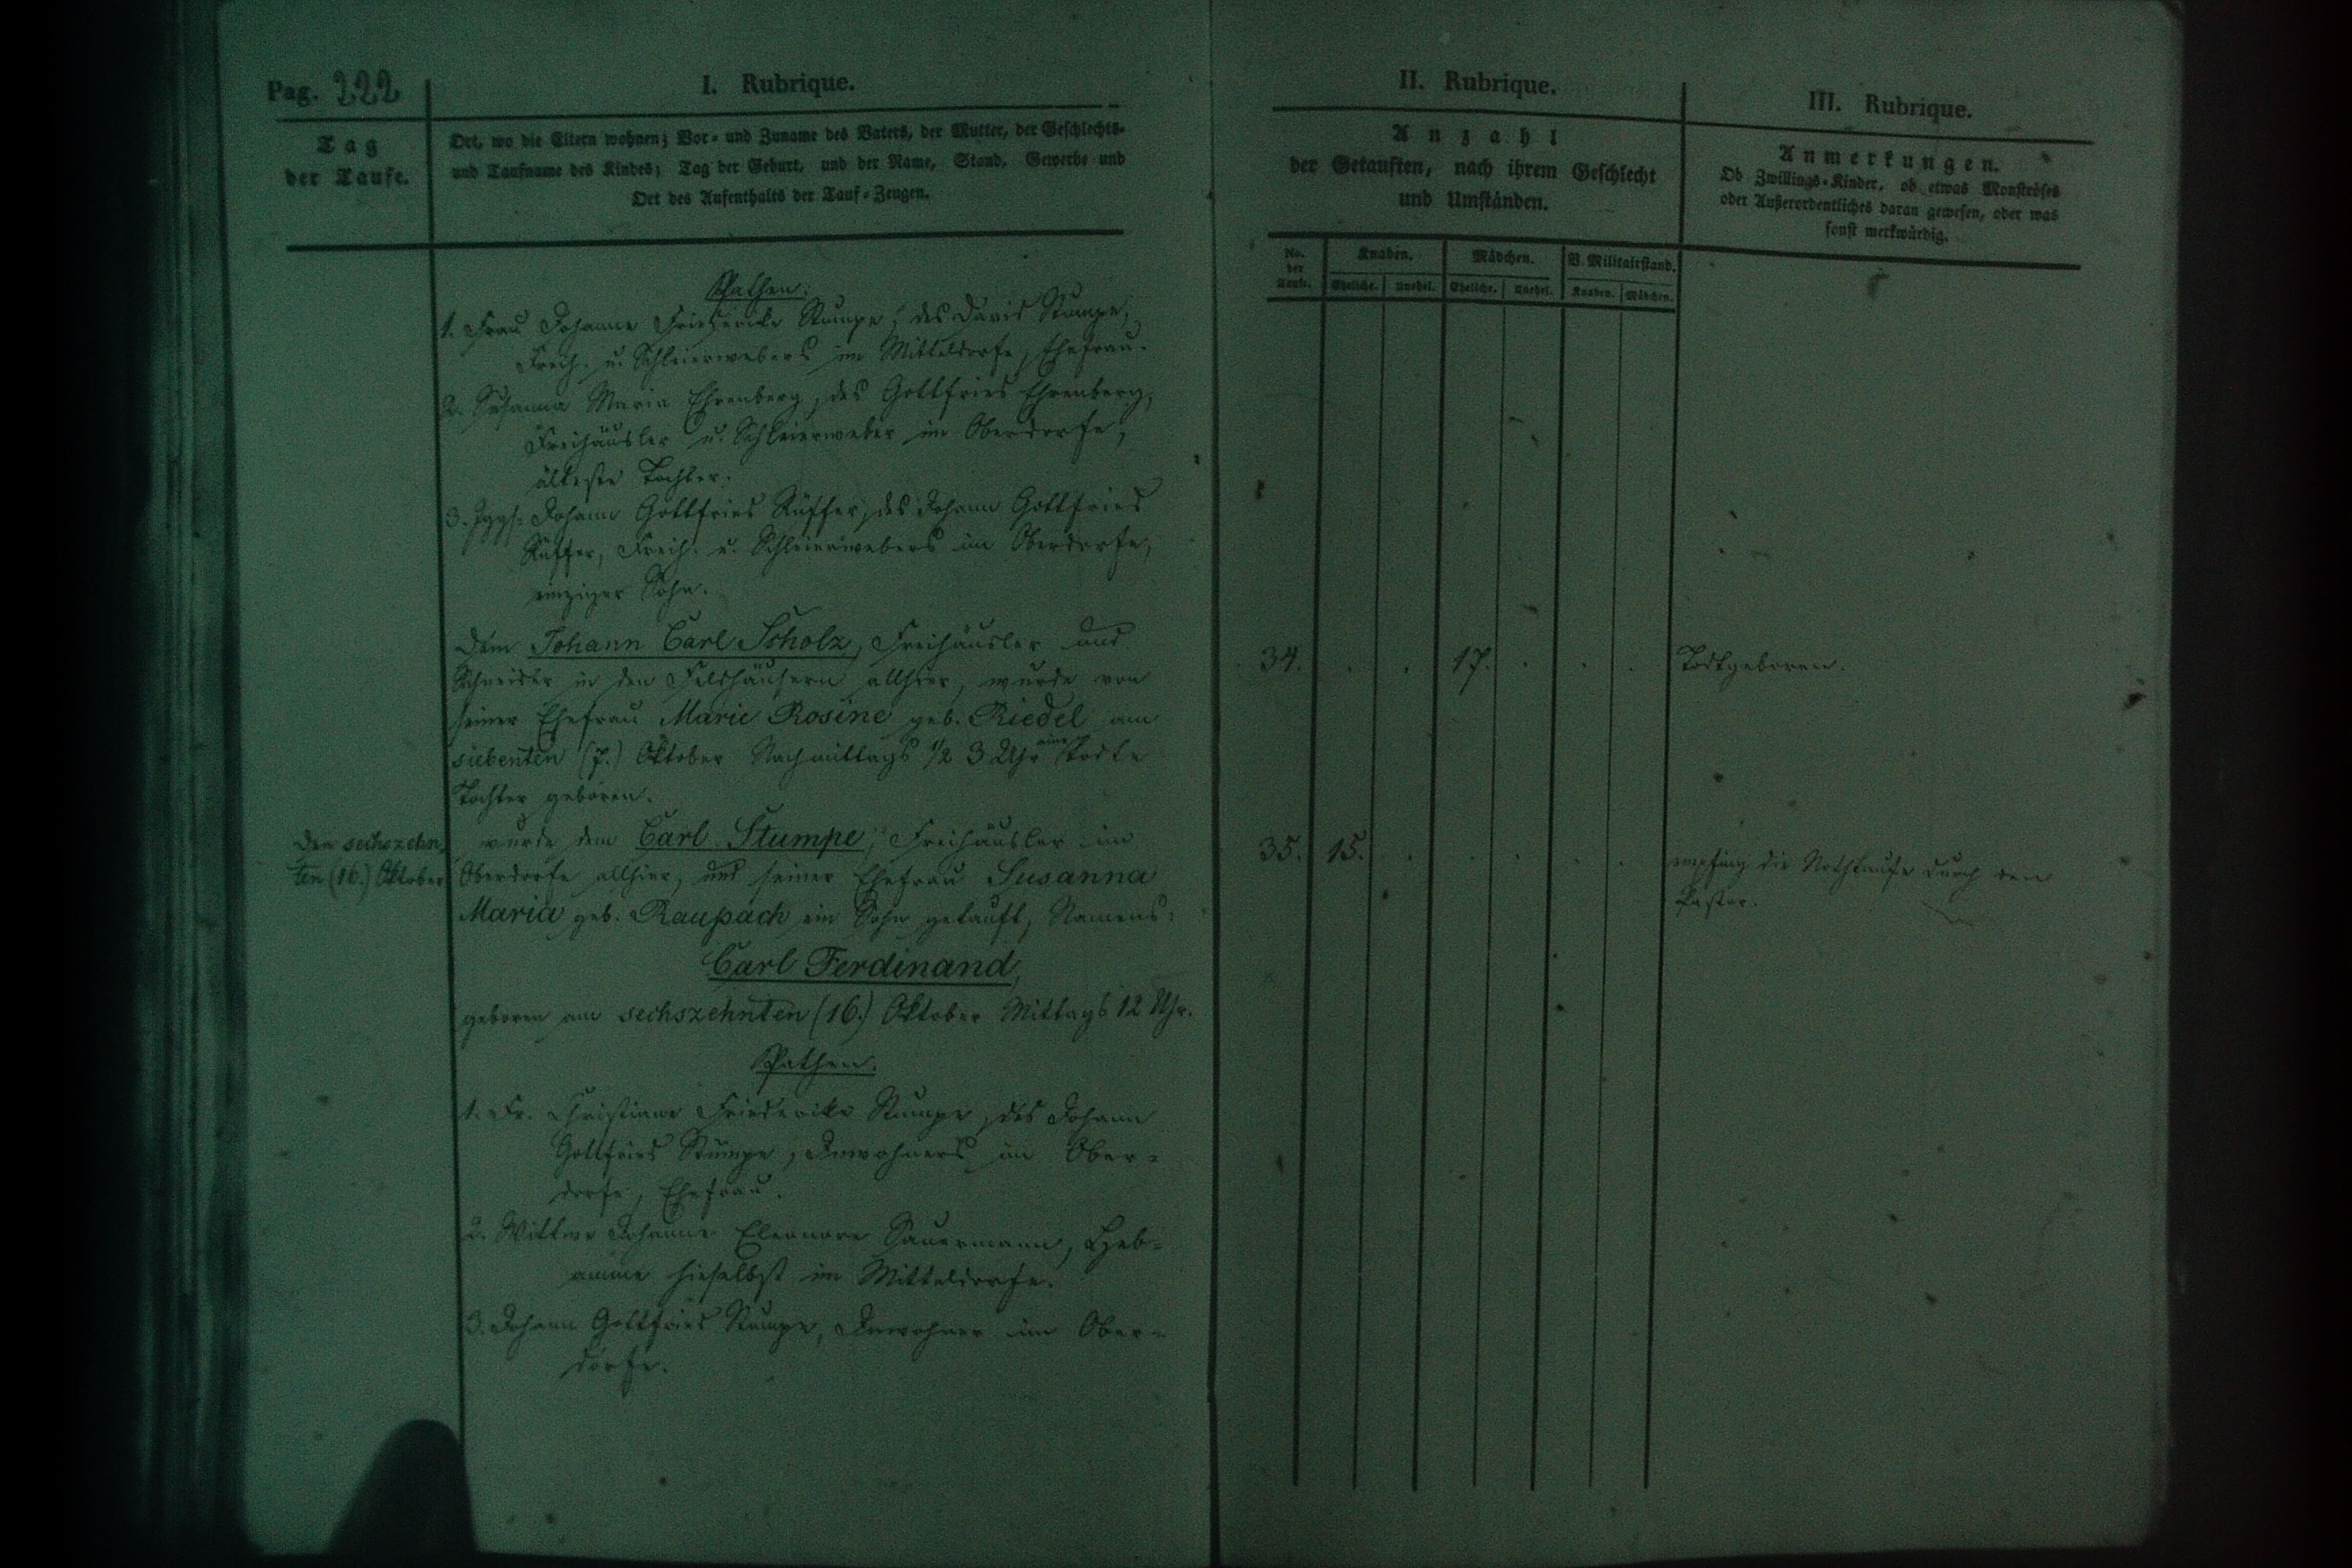 Pag. 222
I. Rubrique.
Tag
der Taufe.
Ort, wo die Eltern wohnen; Vor- und Zuname des Vaters, der Mutter, der Geschlechts-
und Taufname des Kindes; Tag der Geburt, und der Name, Stand, Gewerbe und
Ort des Aufenthalts der Tauf-Zeugen.
Pathen.
1. Frau Johanne Friederike Stumpe, des David Stumpe,
Freih. u. Schleierwebers im Mitteldorfe, Ehefrau.
2. Susanna Maria Ehrenberg, des Gottfried Ehrenberg,
Freihäusler u. Schleierweber im Oberdorfe,
älteste Tochter.
3. Jggs. Johann Gottfried Rüffer, des Johann Gottfried
Rüffer, Freih. u. Schleierwebers im Oberdorfe,
einziger Sohn.
Dem Johann Carl Scholz, Freihäusler und
Schneider in den Feldhäusern allhier, wurde von
seiner Ehefrau Marie Rosine geb. Riedel am
siebenten (7.) Oktober Nachmittags 1/2 3 Uhr eine todte
Tochter geboren.
Den sechszehn-
ten (16.) Oktober
wurde dem Carl Stumpe, Freihäusler im
Oberdorfe allhier, und seiner Ehefrau Susanna
Maria geb. Raupach ein Sohn getauft, Namens:
Carl Ferdinand,
geboren am sechszehnten (16.) Oktober Mittags 12 Uhr.
Pathen.
1. Fr. Christiane Friederike Stumpe, des Johann
Gottfried Stumpe, Inwohners im Ober-
dorfe, Ehefrau.
2. Wittwe Johanne Eleonore Sauermann, Heb-
amme hieselbst im Mitteldorfe.
3. Johann Gottfried Stumpe, Inwohner im Ober-
dorfe.
II. Rubrique.
Anzahl
der Getauften, nach ihrem Geschlecht
und Umständen.
No.
der
Taufe.
Knaben.
Mädchen.
V. Militairstand.
Eheliche. Unehel. Eheliche. Unehel. Knaben. Mädchen.
34. . . 17. . . .
35. 15. . . . . .
III. Rubrique.
Anmerkungen.
Ob Zwillings-Kinder, ob etwas Monströses
oder Außerordentliches daran gewesen, oder was
sonst merkwürdig.
Todtgeboren.
empfing die Nothtaufe durch den
Pastor.